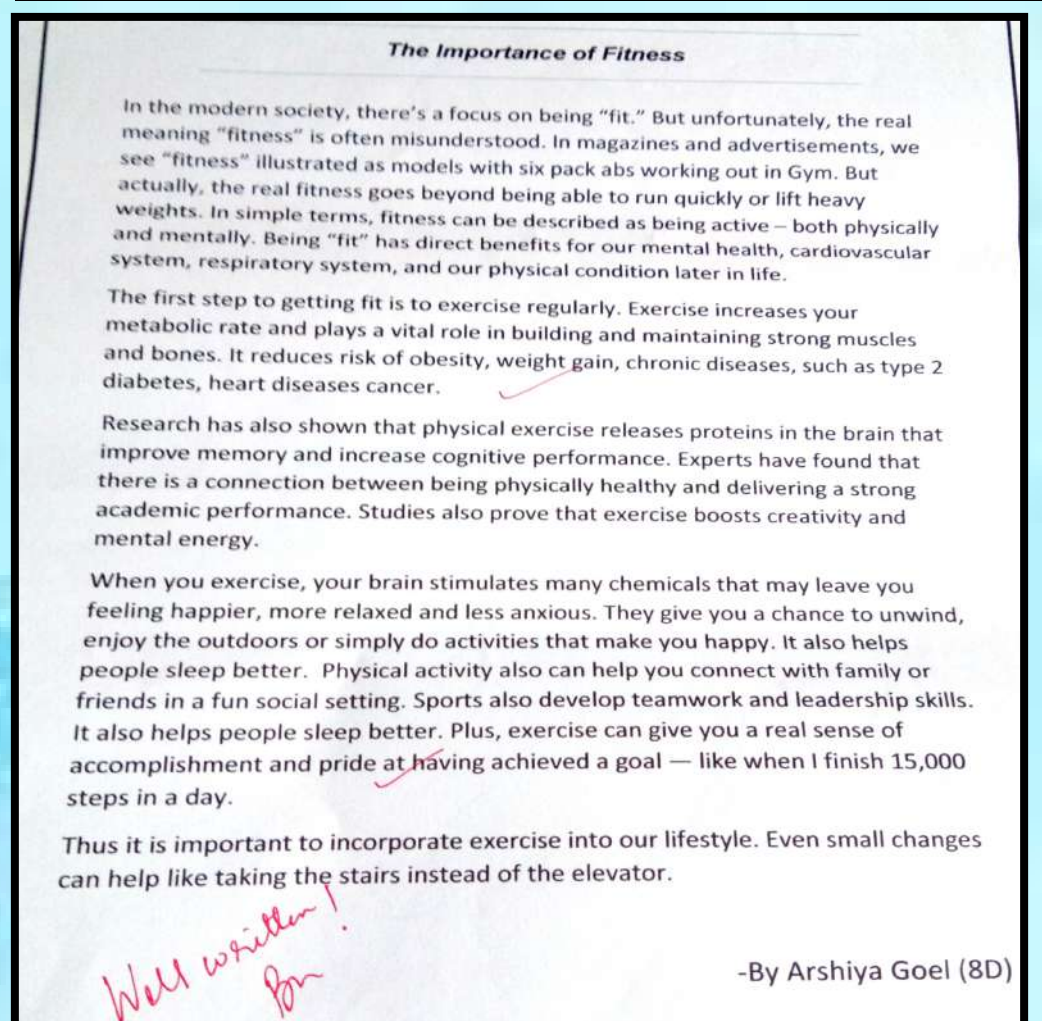 The Importance of Fitness
In the modern society, there's a focus on being "fit." But unfortunately, the real
meaning "fitness" is often misunderstood. In magazines and advertisements, we
see "fitness" illustrated as models with six pack abs working out in Gym. But
actually, the real fitness goes beyond being able to run quickly or lift heavy
weights. In simple terms, fitness can be described as being active – both physically
and mentally. Being "fit" has direct benefits for our mental health, cardiovascular
system, respiratory system, and our physical condition later in life.
The first step to getting fit is to exercise regularly. Exercise increases your
metabolic rate and plays a vital role in building and maintaining strong muscles
and bones. It reduces risk of obesity, weight gain, chronic diseases, such as type 2
diabetes, heart diseases cancer.
Research has also shown that physical exercise releases proteins in the brain that
improve memory and increase cognitive performance. Experts have found that
there is a connection between being physically healthy and delivering a strong
academic performance. Studies also prove that exercise boosts creativity and
mental energy.
When you exercise, your brain stimulates many chemicals that may leave you
feeling happier, more relaxed and less anxious. They give you a chance to unwind,
enjoy the outdoors or simply do activities that make you happy. It also helps
people sleep better.  Physical activity also can help you connect with family or
friends in a fun social setting. Sports also develop teamwork and leadership skills.
It also helps people sleep better. Plus, exercise can give you a real sense of
accomplishment and pride at having achieved a goal — like when I finish 15,000
steps in a day.
Thus it is important to incorporate exercise into our lifestyle. Even small changes
can help like taking the stairs instead of the elevator.
Well written!
-By Arshiya Goel (8D)